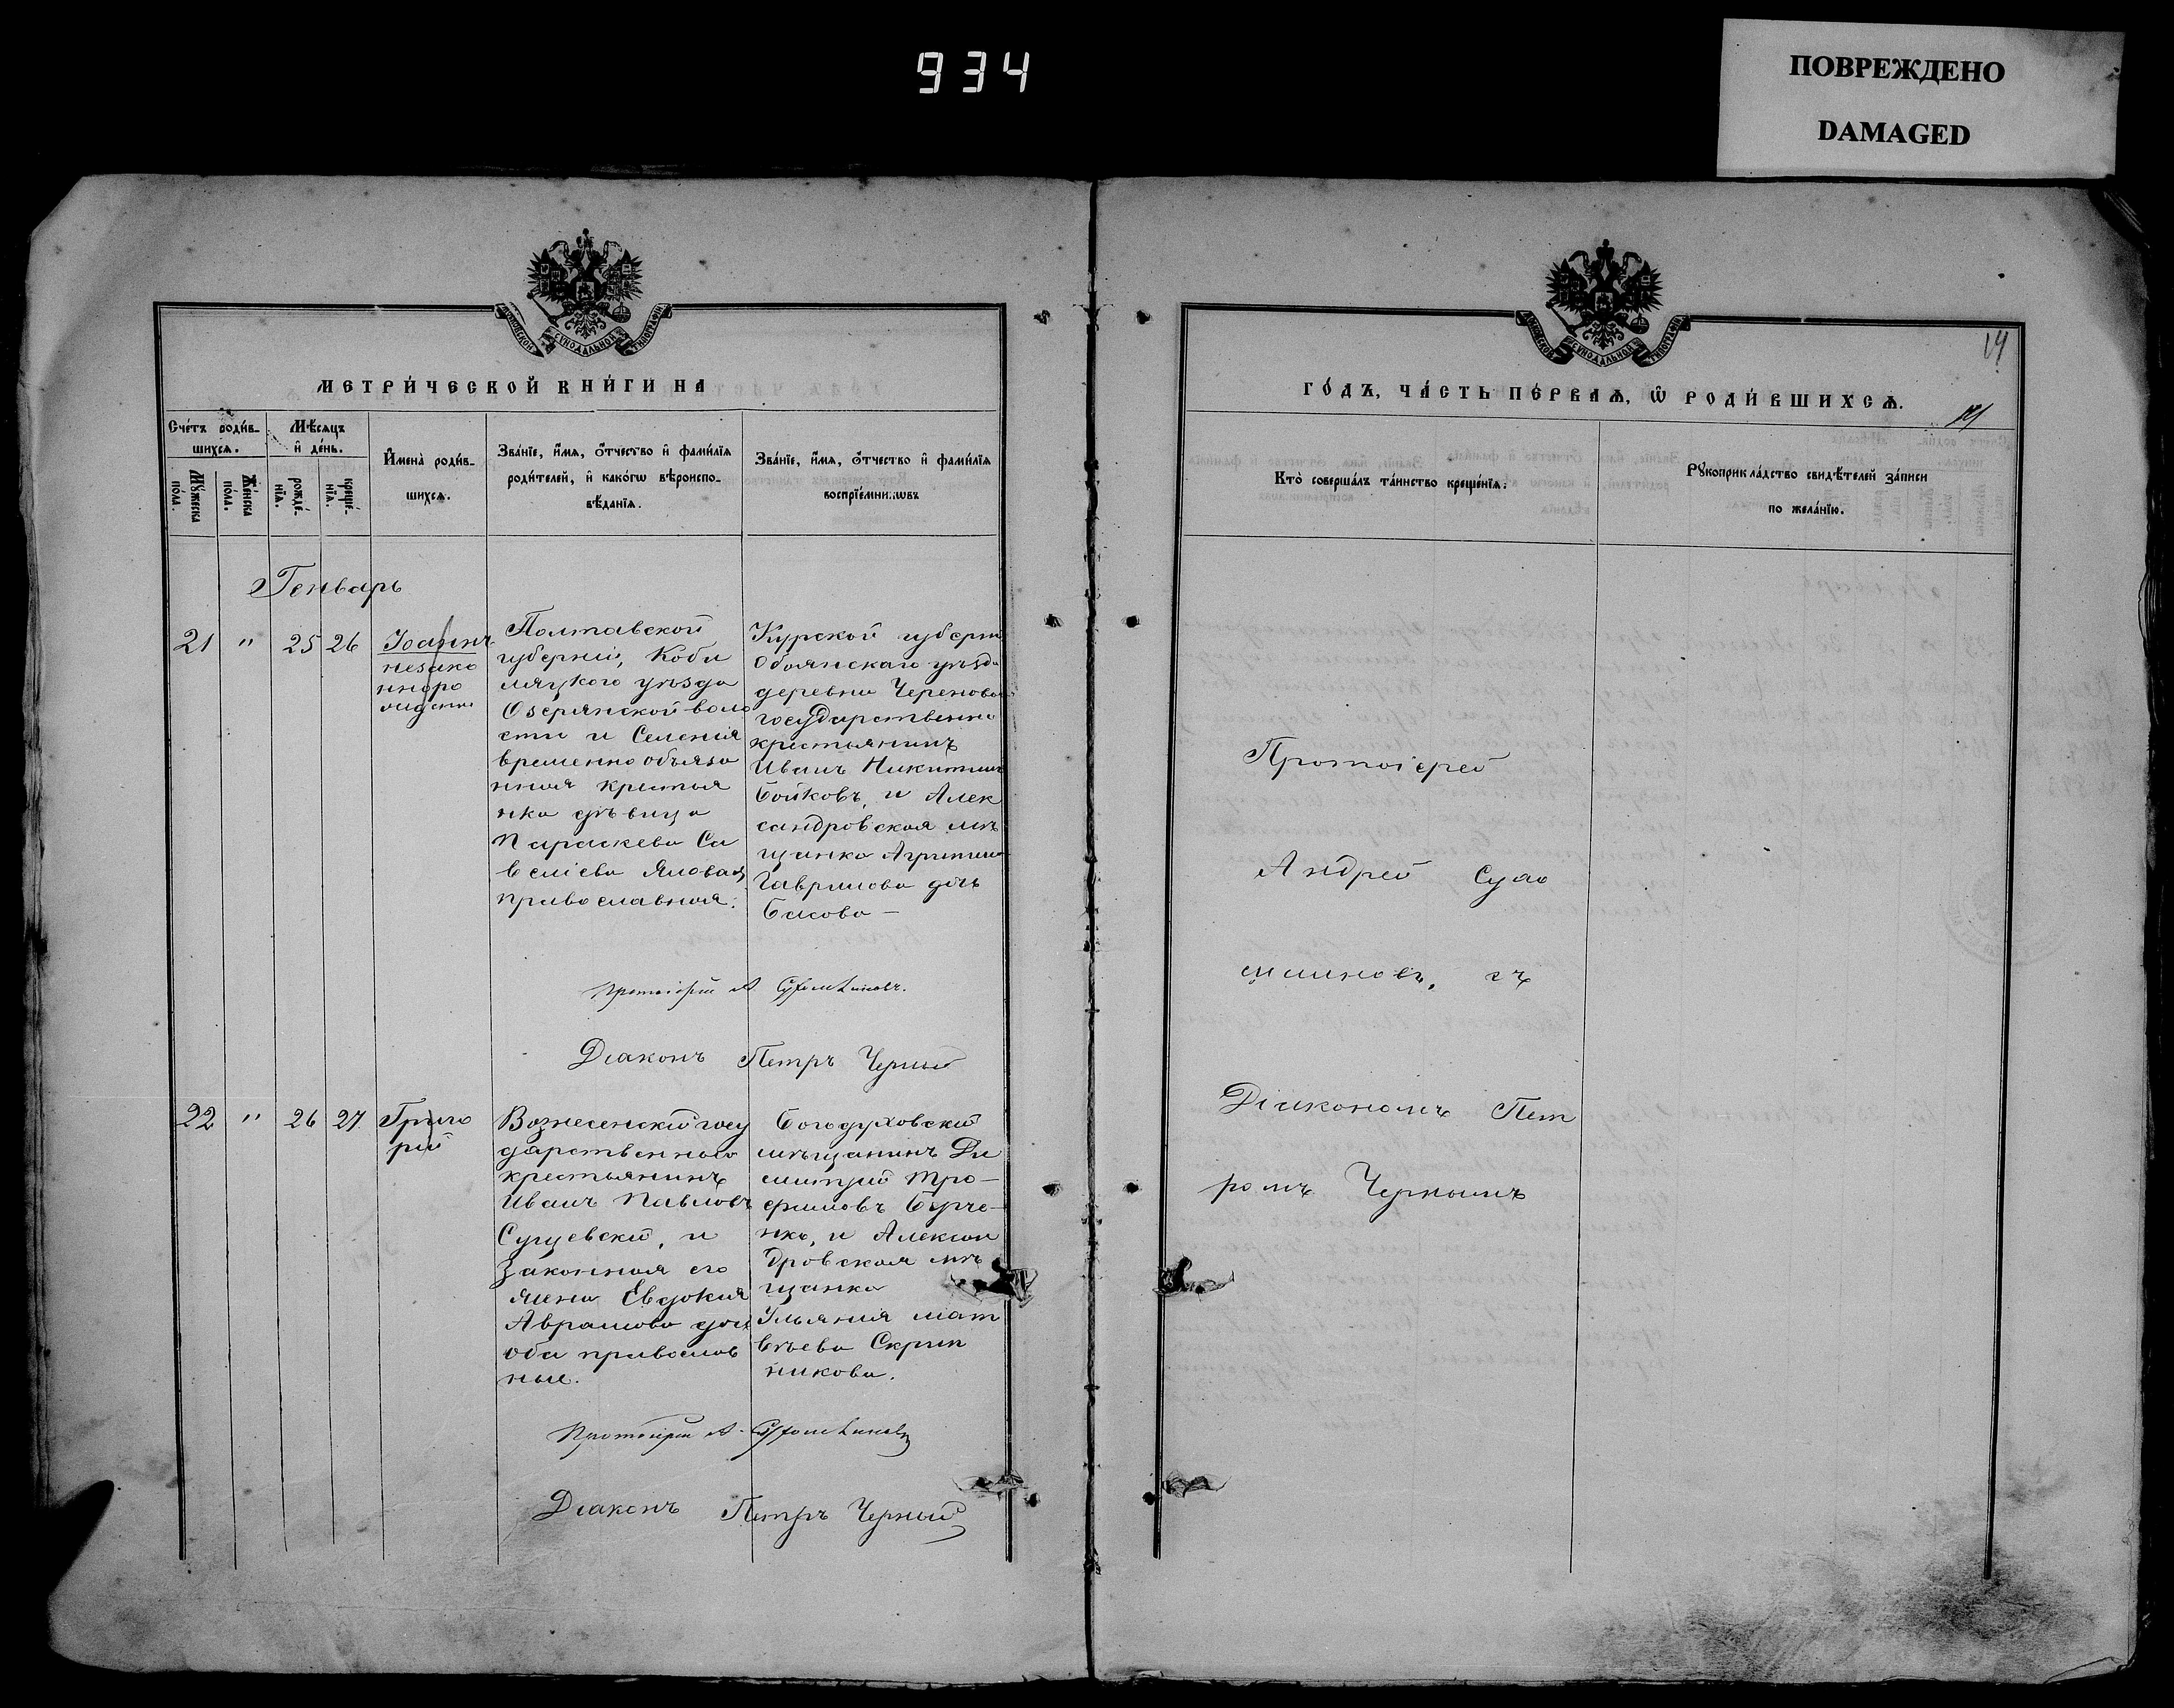 934
ПОВРЕЖДЕНО
DAMAGED
МОСКОВСКОЙ СУНОДАЛЬНОЙ ТИПОГРАФІИ
МЕТРИ́ЧЕСКОЙ КНИ́ГИ НА
Сче́тъ роди́в-
шихсѧ.
Мѣ́сѧцъ
и҆ де́нь.
Мꙋ́жеска
по́ла.
Же́нска
по́ла.
рожде́-
нїѧ.
креще́-
нїѧ.
И҆мена̀ роди́в-
шихсѧ.
Зва́нїе, и҆́мѧ, ѻ҆́тчество и҆ фами́лїѧ
роди́телей, и҆ како́гѡ вѣроиспо-
вѣ́данїѧ.
Зва́нїе, и҆́мѧ, ѻ҆́тчество и҆ фами́лїѧ
воспрїе́мникѡвъ
Генварь
21 " 25 26
Іоаннъ
незако
нноро
жденн
Полтавской
губерніи, Кобы
ляцкого уѣзда
Озерянской воло
сти и Селенія
временно обяза
нная крестья
нка дѣвица
Параскева Са
веліева Яловая
православная.
Курской губерн
Обоянскаго уѣзда
деревни Череновой
государственно
крестьянинъ
Иванъ Никитинъ
Бойковъ, и Алек
сандровская мѣ
щанка Агрипина
Гаврилова дочь
Басова —
Протоіерей А Сухомлиновъ.
Діаконъ Петръ Черный
22 " 26 27
Григо
рій
Вознесенскій госу
дарственный
крестьянинъ
Иванъ Павловъ
Сущевскій, и
законная его
жена Евдокия
Аврамова дочь
оба православ
ные.
Богодуховскій
мѣщанинъ Ди
митрій Тро-
фимовъ Бурче-
нко, и Алексан
дровская мѣ
щанка
Ульяния мат
вѣева Скрип
никова.
Протоіерей А. Сухомлиновъ
Діаконъ Петръ Черный
МОСКОВСКОЙ СУНОДАЛЬНОЙ ТИПОГРАФІИ
19
ГО́ДЪ, ЧА́СТЬ ПЕ́РВАѦ, Ѡ҆ РОДИ́ВШИХСѦ.
19
Кто̀ соверша́лъ та́инство креще́нїѧ:
Рꙋкоприкла́дство свидѣ́телей за́писи
по жела́нїю.
Протоіерей
Андрей Сухо
млиновъ, съ
Діакономъ Пет
ромъ Чернымъ